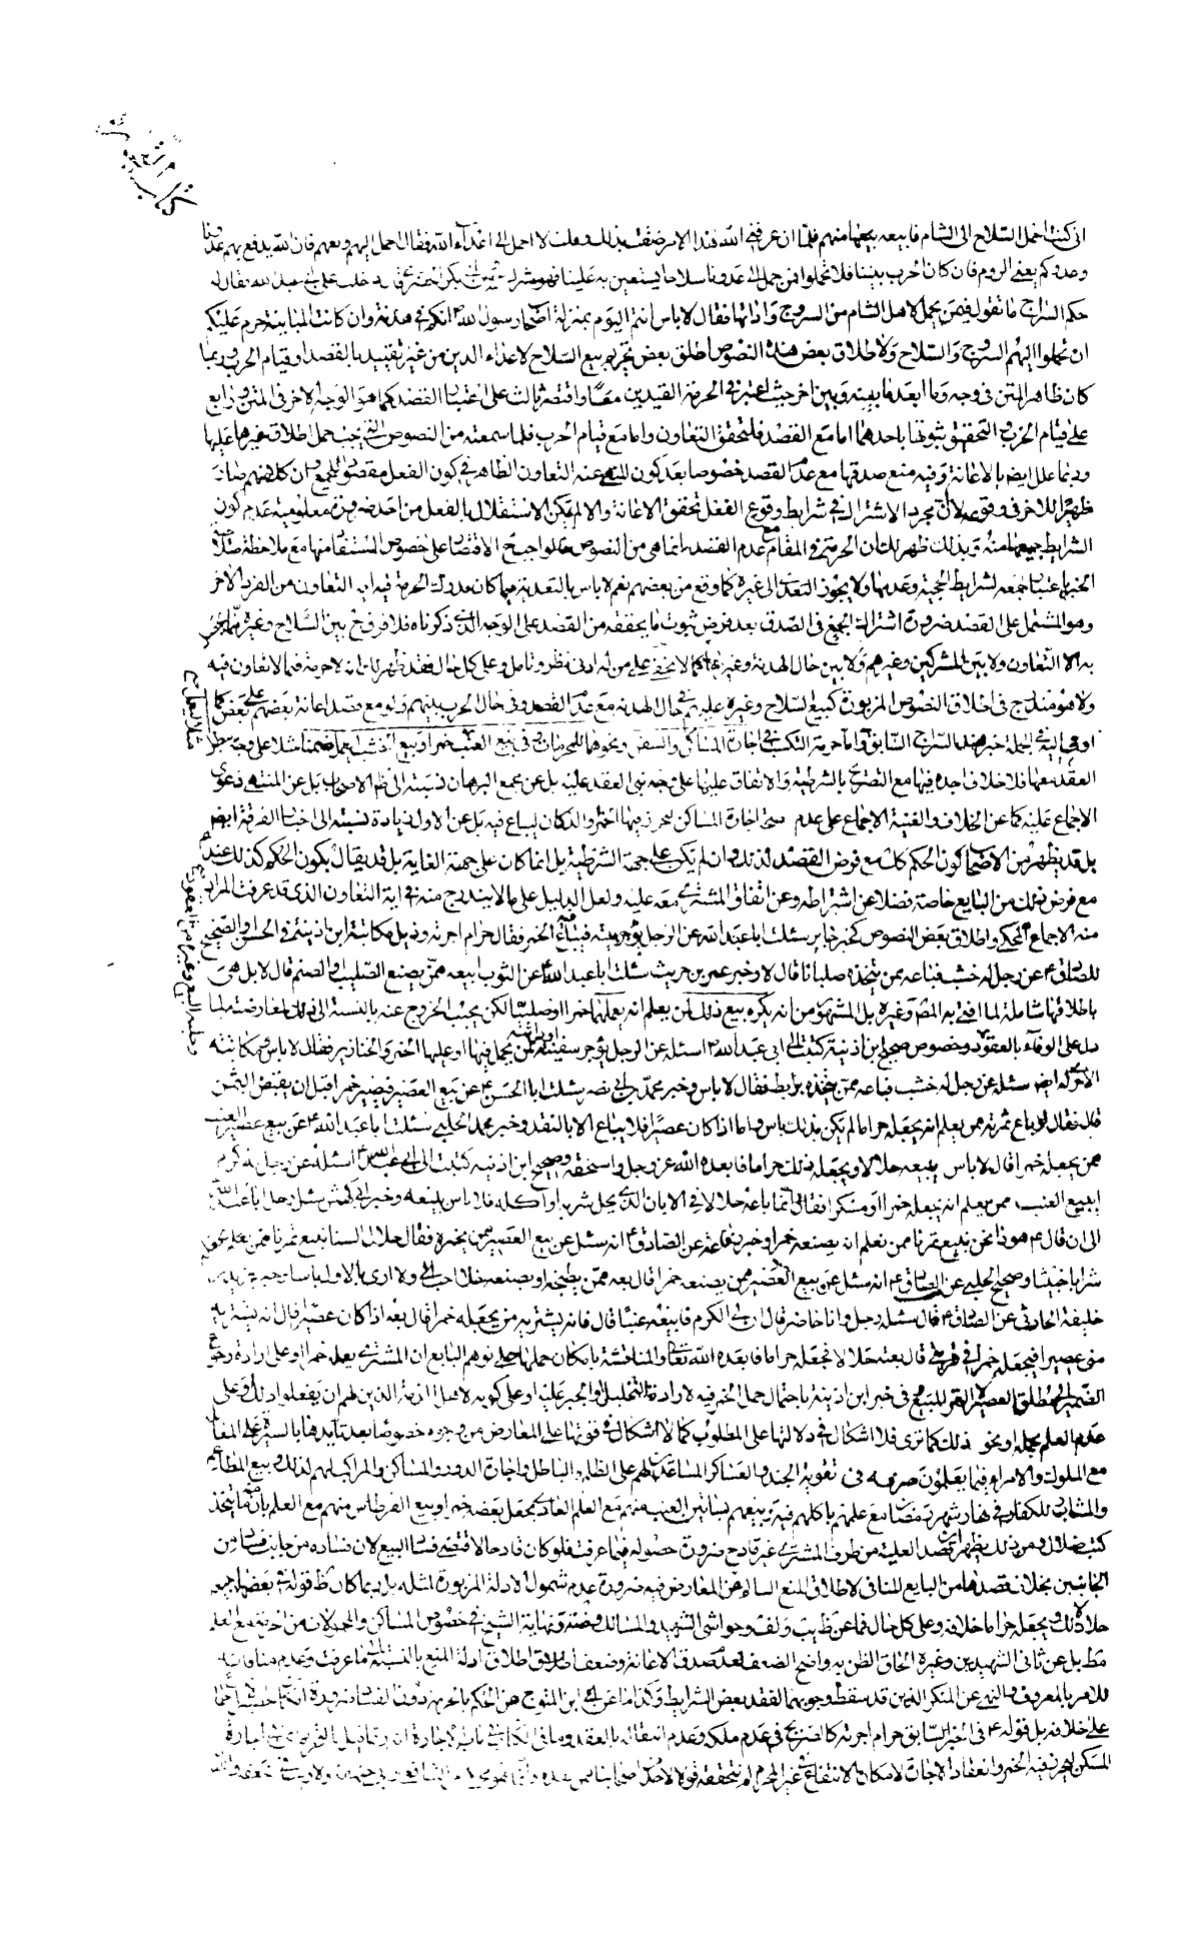 انى كنت احمل السلاح الى الشام فابيعه منهم فلما ان عرفنى الله هذا الامر ضقت بذلك وقلت لا احمل الى اعداء الله فقال احمل اليهم وبعهم فان الله يدفع بهم عدونا
وعدوكم يعنى الروم فان كان الحرب بيننا فلا تحملوا فمن حمل الى عدونا سلاحا يستعين به علينا فهو مشرك
حكم السراج ما تقول فيمن يحمل لاهل الشام من السروج واداتها فقال لا باس انتم اليوم بمنزلة اصحاب رسول الله انكم فى هدنة وان كانت المباينة حرم عليكم
ان تحملوا اليهم السروج والسلاح ولاطلاق بعض هذه النصوص اطلق بعض تحريم بيع السلاح لاعداء الدين من غير تقييد بالقصد او قيام الحرب وربما
كان ظاهر المتن فى وجه وما ابعد ما بينه وبين اخر حيث اعتبر فى الحرمة القيدين معا واقتصر ثالث على اعتبار القصد كما هو الوجه الاخر فى المتن ورابع
على قيام الحرب والتحقيق ثبوتها باحدهما اما مع القصد فلتحقق التعاون واما مع قيام الحرب فلما سمعته من النصوص التى يجب حمل اطلاق غيرها عليها
وربما علل ايضا بالاعانة وفيه منع صدقها مع عدم القصد خصوصا بعد كون المنهى عنه التعاون الظاهر فى كون الفعل مقصودا للجميع وان كلا منهم صار
ظهيرا للاخر فى وقوعه لا ان مجرد الاشتراك فى شرايط وقوع الفعل تحقق الاعانة والا لم يمكن الاستقلال بالفعل من احد ضرورة معلومية عدم كون
الشرايط جميعها منه وبذلك ظهر لك ان الحرمة فى المقام مع عدم القصد انما هى من النصوص فالواجب ح الاقتصار على خصوص المستفاد منها مع ملاحظة
الخبر باعتبار جمعه لشرايط الحجية وعدمها ولا يجوز التعدى الى غيره كما وقع من بعضهم نعم لا باس بالتعدية فيما كان مدرك الحرمة فيه اية التعاون من الفرد الاخر
وهو المشتمل على القصد ضرورة اشتراك الجميع فى الصدق بعد فرض ثبوت ما يحققه من القصد على الوجه الذى ذكرناه فلا فرق ح بين السلاح وغيره
ولا بين المشركين وغيرهم ولا بين حال الهدنة وغيرها كما لا يخفى على من له ادنى نظر وتامل وعلى كل حال فقد ظهر لك انه لا حرمة فيما لا تعاون فيه
ولا هو مندرج فى اطلاق النصوص المزبورة كبيع السلاح وغيره عليهم فى حال الهدنة مع عدم القصد وفى حال الحرب بينهم ولو مع قصد اعانة بعضهم على بعض كما
اومى اليه فى الجملة خبر هند السراج السابق واما حرمة التكسب فى اجارة المساكن والسفن ونحوهما للمحرمات وفى بيع العنب خمرا وبيع الخشب ليعمل صنما مثلا على وجه يبطل
العقد معها فلا خلاف اجده فيها مع التصريح بالشرطية والاتفاق عليها على وجه بنى العقد عليه بل عن مجمع البرهان نسبته الى ظاهر الاصحاب بل عن المنتهى دعوى
الاجماع عليه كما عن الخلاف والغنية الاجماع على عدم صحة اجارة المساكن ليحرز فيها الخمر والدكان ليباع فيه بل عن الاول زيادة نسبته الى اخبار الفرقة ايضا
بل قد يظهر من الاصحاب كون الحكم كذلك مع فرض القصد لذلك وان لم يكن على جهة الشرطية بل انما كان على جهة الغاية بل قد يقال بكون الحكم كذلك عندهم
مع فرض ذلك من البايع خاصة فضلا عن اشتراطه وعن اتفاق المشترى معه عليه ولعل الدليل على ما لا يندرج منه فى اية التعاون الذى قد عرفت المراد
منه الاجماع المحكى واطلاق بعض النصوص كخبر جابر سئلت ابا عبد الله عن الرجل يؤجر بيته فيباع فيه الخمر فقال حرام اجرته وذيل مكاتبة ابن اذينة فى الحسن او الصحيح
للصادق عن رجل له خشب فباعه ممن يتخذه صلبانا قال لا وخبر عمر بن حريث سئلت ابا عبد الله عن التوت ابيعه ممن يصنع الصليب والصنم قال لا بل هى
باطلاقها شاملة لما افتى به المصنف وغيره بل المشهور من انه يكره بيع ذلك لمن يعلم انه يعملها خمرا او صليبا لكن يجب الخروج عنه بالنسبة الى ذلك لمعارضته لما
دل على الوفاء بالعقود وخصوص صحيح ابن اذينة كتبت الى ابى عبد الله اسئله عن الرجل يؤجر سفينته او دابته ممن يحمل فيها او عليها الخمر والخنازير فقال لا باس ومكاتبته
الاخرى له ايضا سئله عن رجل له خشب فباعه ممن يتخذه برابط فقال لا باس وخبر محمد بن ابى نصر سئلت ابا الحسن عن بيع العصير فيصير خمرا قبل ان يقبض الثمن
قال فقال لو باع ثمرته ممن يعلم انه يجعله حراما لم يكن بذلك باس واما اذا كان عصيرا فلا يباع الا بالنقد وخبر محمد الحلبى سئلت ابا عبد الله عن بيع عصير العنب
ممن يجعله خمرا قال لا باس يبيعه حلالا ويجعله ذلك حراما فابعده الله عز وجل واسحقه وصحيح ابن اذينة كتبت الى ابى عبد الله اسئله عن رجل له كرم
ايبيع العنب ممن يعلم انه يجعله خمرا او مسكرا فقال انما باعه حلالا فى الابان الذى يحل شربه او اكله فلا باس ببيعه وخبر ابى كهمش سئل رجل ابا عبد الله
الى ان قال هو ذا نحن نبيع تمرنا ممن نعلم انه يصنعه خمرا وخبر رفاعة عن الصادق انه سئل عن بيع العصير ممن يخمره فقال حلال السنا نبيع تمرنا ممن يجعله
شرابا خبيثا وصحيح الحلبى عن الصادق انه سئل عن بيع العصير ممن يصنعه خمرا قال بعه ممن يطبخه او يصنعه خلا احب الى ولا ارى بالاول باسا وخبر يزيد بن
خليفة الحارثى عن الصادق قال سئله رجل وانا حاضر قال ان لى الكرم فابيعه عنبا قال فانه يشتريه من يجعله خمرا قال بعه اذا كان عصيرا قال انه يشتريه
منى عصيرا فيجعله خمرا فى قربتى قال بعته حلالا فجعله حراما فابعده الله تعالى والمناقشة بامكان حملها على توهم البايع ان المشترى يعمله خمرا او على ارادة رجوع
الضمير الى مطلق العصير والتمر لا المبيع فى خبر ابن اذينة باحتمال حمل الخمر فيه لارادة التخليل والجبر عليه
عدم العلم بجعله او نحو ذلك كما ترى فلا اشكال فى دلالتها على المطلوب كما لا اشكال فى قوتها على المعارض من وجوه خصوصا بعد تأيدها بالسيرة على المعاملة
مع الملوك والامراء فيما يعلمون صرفه فى تقوية الجند والعساكر المساعدين لهم على الظلم والباطل واجارة الدور والمساكن والمراكب لهم لذلك وبيع المطاعم
والمشارب للكفار فى نهار شهر رمضان مع علمهم باكلهم فيه وبيعهم بساتين العنب منهم مع العلم العادى بجعل بعضه خمرا وبيع القرطاس منهم مع العلم بان منه ما يتخذ
كتب ضلال ومن ذلك يظهر ان قصد العلية من طرف المشترى غير قادح ضرورة حصوله فيما عرفت فلو كان قادحا لاقتضى فساد البيع لان فساده من جانب فساد من
الجانبين بخلاف قصدها من البايع للمنافى لاطلاق المنع السالم عن المعارض فيه ضرورة عدم شمول الادلة المزبورة لمثله بل ربما كان ظ قوله فى بعضها بيعه
حلالا ذلك ويجعله حراما خلافه وعلى كل حال فما عن ظاهر وحواشى الشهيد والمسالك والروضة ونهاية الشيخ فى خصوص المساكن والحمولات من الحرمة مع العلم
مط بل عن ثانى الشهيدين وغيره الحاق الظن به واضح الضعف لعدم صدق الاعانة وضعف اطلاق ادلة المنع بالنسبة لما عرفت وعدم منافاته
للامر بالمعروف والنهى عن المنكر الذين قد سقط وجوبهما لفقد بعض الشرايط وكذا ما عن ابن المتوج من الحكم بالحرمة دون الفساد
على خلافه بل قوله فى الخبر السابق حرام اجرته كالصريح فى عدم ملكه وعدم انتقاله بالعقد
المسكن ليحرز فيه الخمر وانعقاد الاجارة لامكان الانتفاع فى غير المحرم لم نتحققه قولا لاحد من اصحابنا